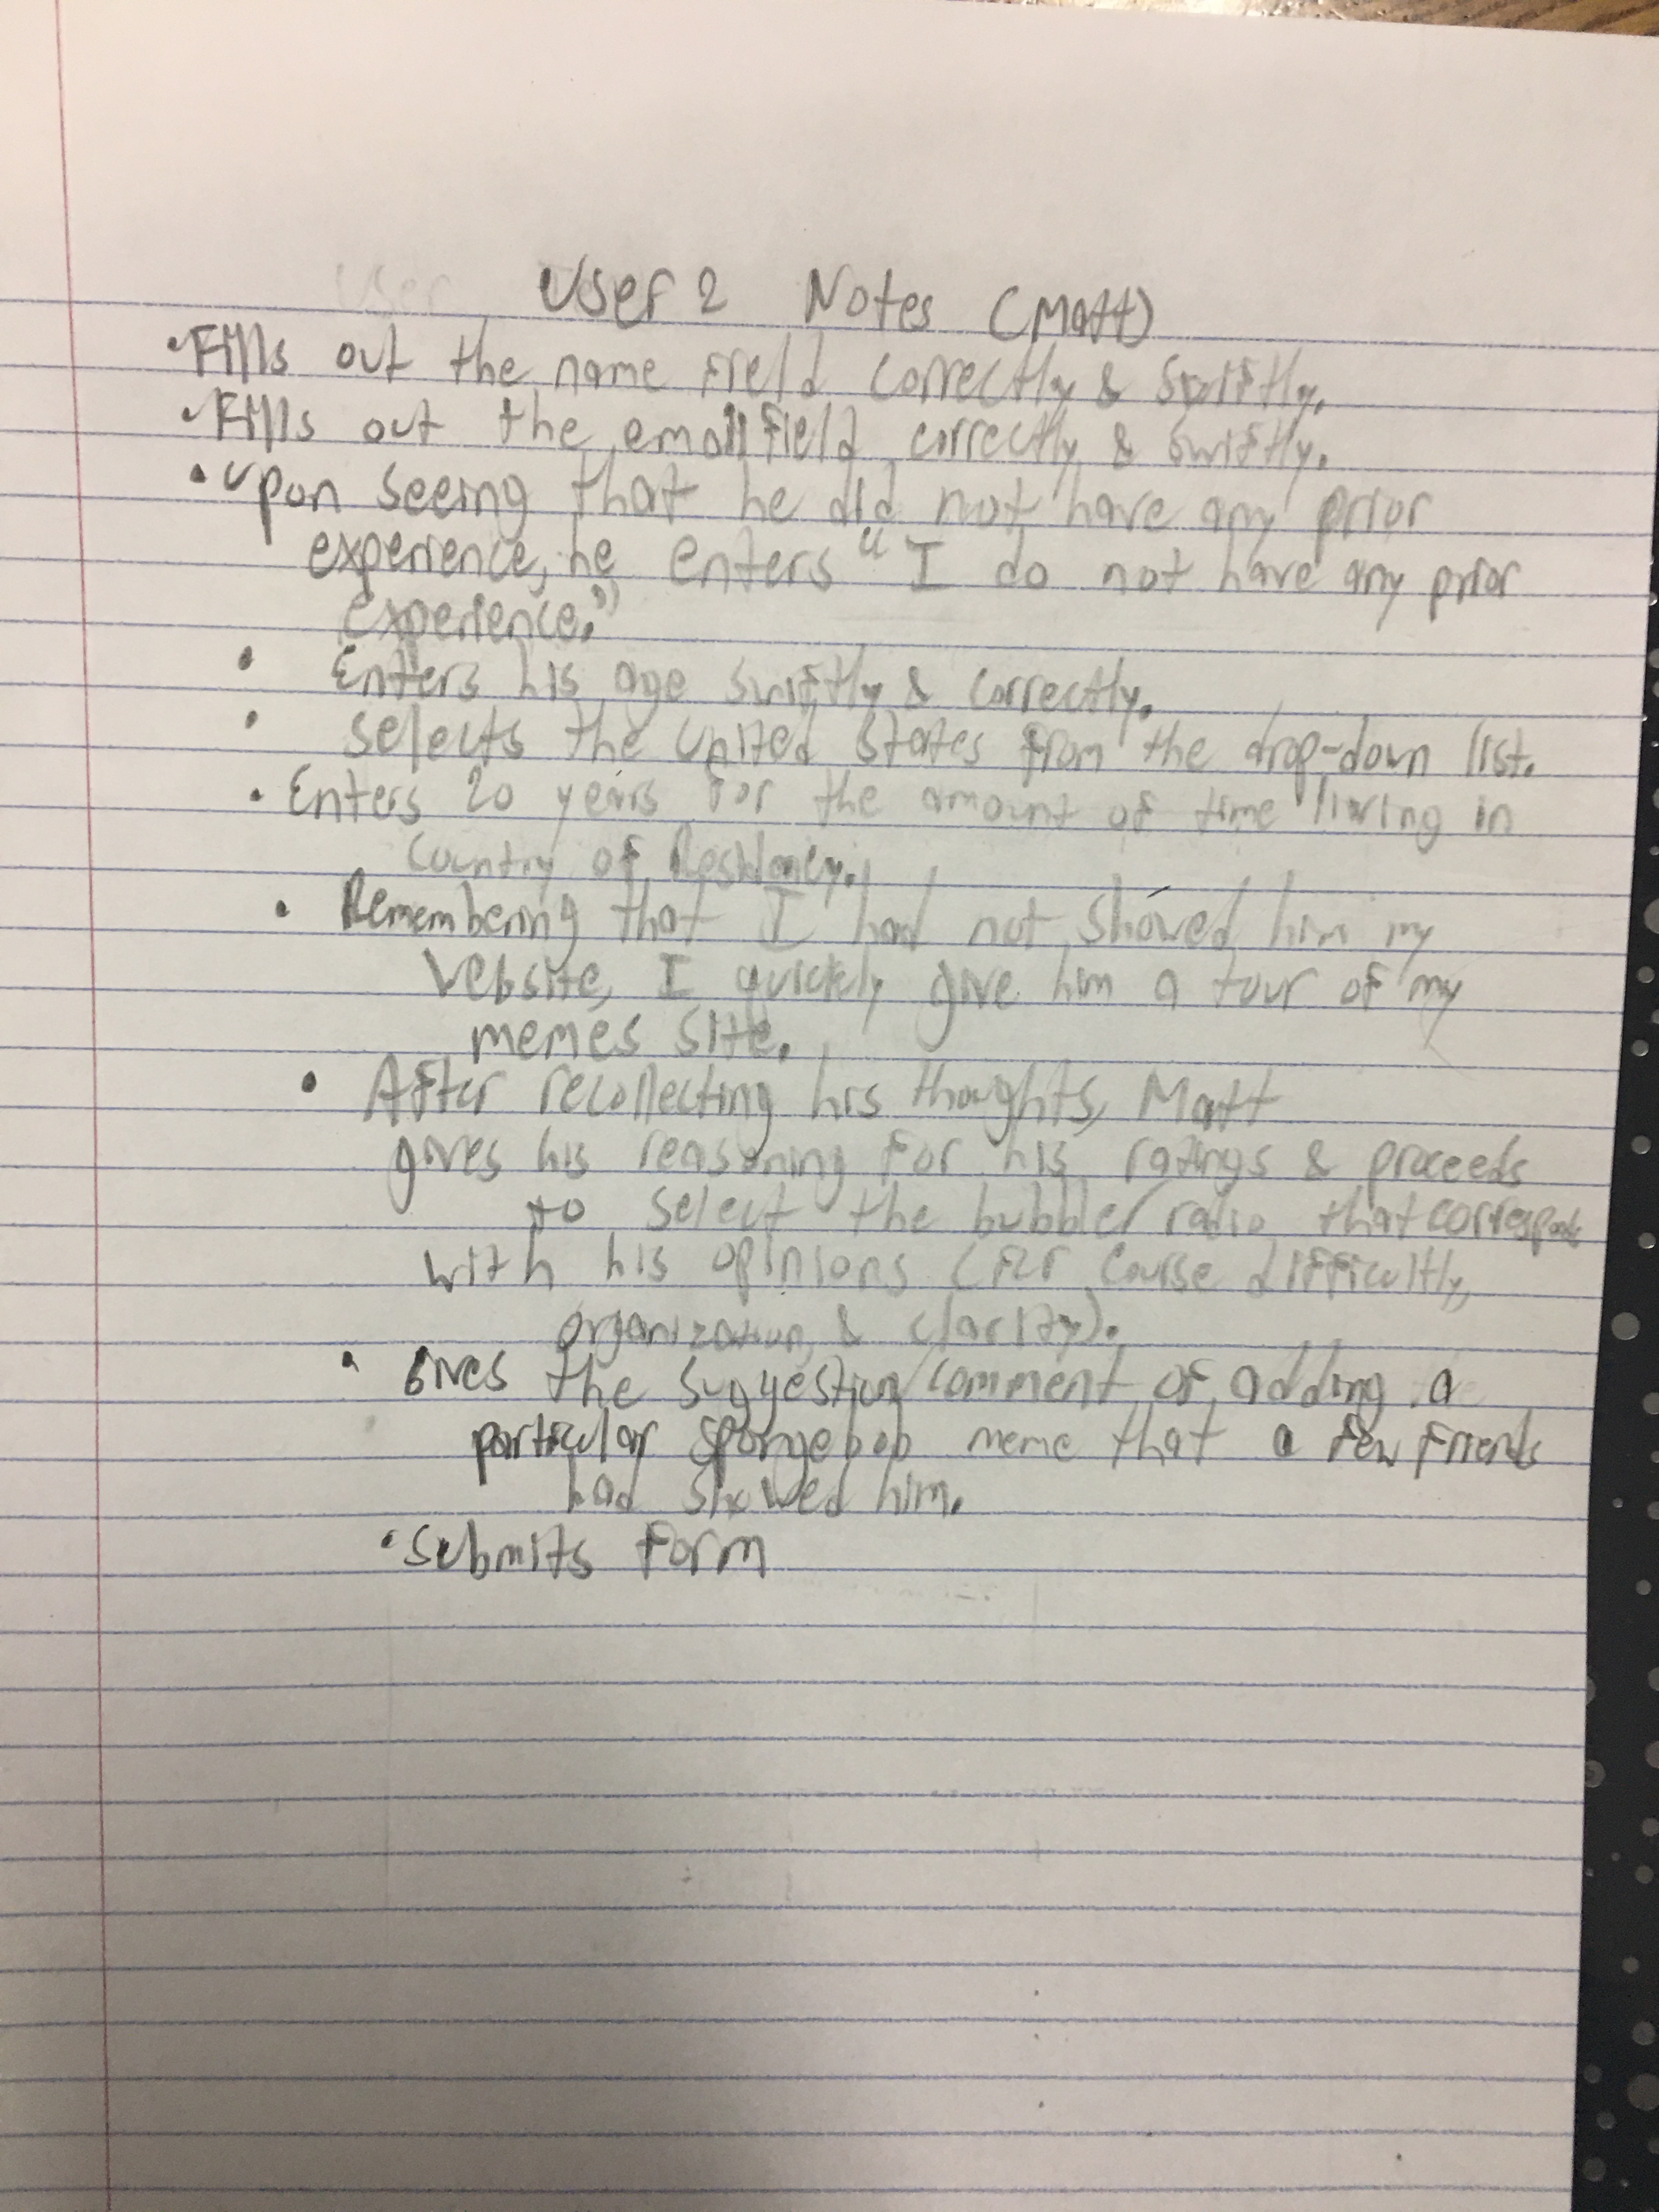 User 2 Notes (Matt)
• Fills out the name field correctly & swiftly.
• Fills out the email field correctly & swiftly.
• Upon seeing that he did not have any prior
experience, he enters "I do not have any prior
experience."
• Enters his age swiftly & correctly.
• Selects the United States from the drop-down list.
• Enters 20 years for the amount of time living in
Country of Residency.
• Remembering that I had not showed him my
website, I quickly give him a tour of my
memes site.
• After recollecting his thoughts, Matt
gives his reasoning for his ratings & proceeds
to select the bubble/ratio that
with his opinions (for course difficultly,
organization, & clarity).
• Gives the suggestion/comment of adding a
particular spongebob meme that a few friends
had showed him.
• Submits form